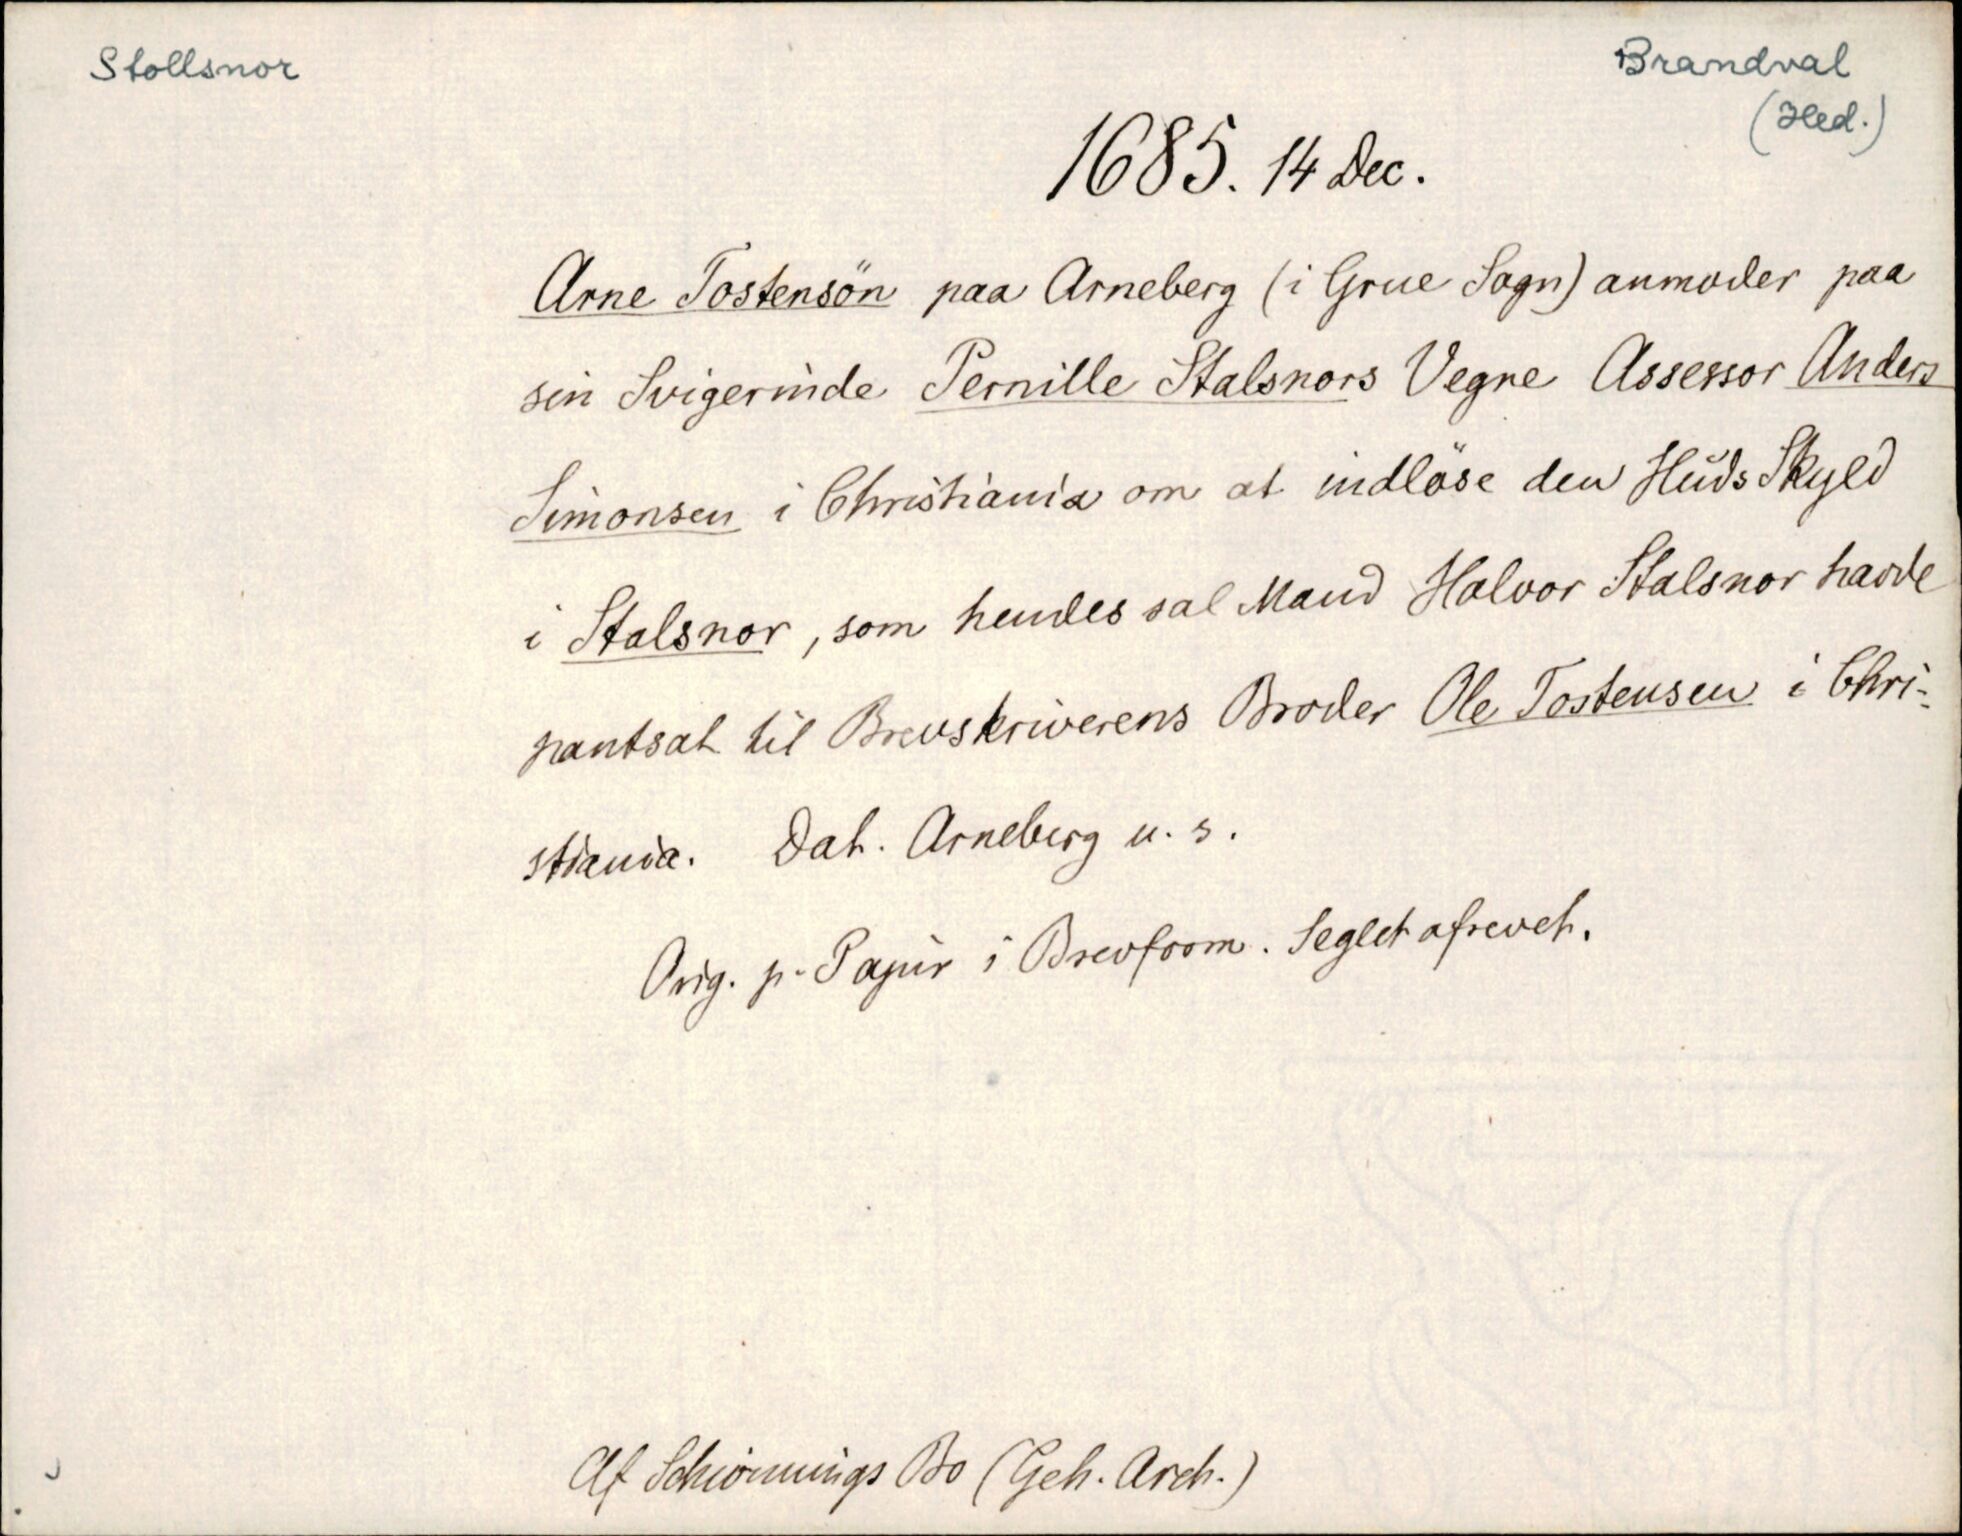 Stollsnor
Brandval
(Hed.)
1685. 14 Dec.
Arne Tostensön paa Arneberg (i Grue Sogn) anmoder paa
sin Svigerinde Pernille Stalsnors Vegne Assessor Anders
Simonsen i Christiania om at indlöse den Huds Skyld
i Stalsnor, som hendes sal Mand Halvor Stalsnor havde
pantsat til Brevskriverens Broder Ole Tostensen i Chri-
stiania. Dat. Arneberg u. s.
Orig. p. Papir i Brevform. Seglet afrevet.
Af Schiönnings Bo (Geh. Arch.)